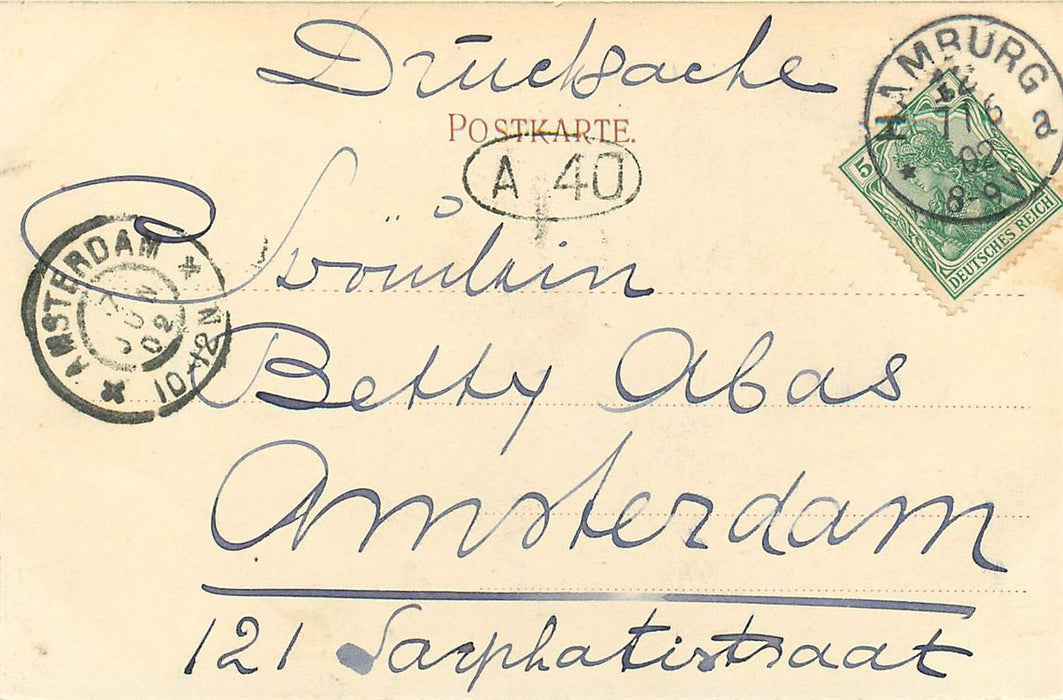 Drucksache
POSTKARTE.
A 40
HAMBURG a
11 6
02
8-9V
5
DEUTSCHES REICH
AMSTERDAM
JUN
02
10-12N
Fräulein
Betty Abas
Amsterdam
121 Sarphatistraat